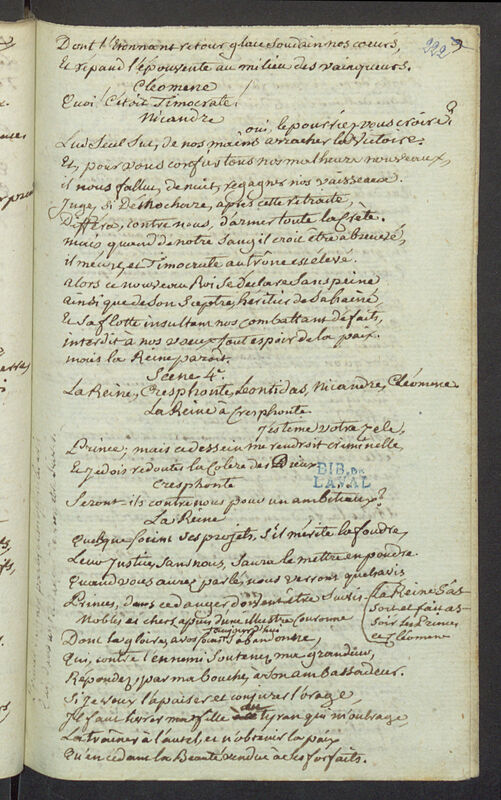 222
Dont l'étonnant retour glace soudain nos coeurs,
Et répand l'épouvente au milieu des vainqueurs.
Cléomene
Quoi! C'étoit Timocrate!
Nicandre
oui, le pourriez-vous croire?
Lui seul sut, de nos mains arracher la Victoire.
Et, pour vous confus tous nos malheurs nouveaux,
il nous fallut, de nuit, regagner nos vaisseaux.
Juge, si Demochare, après cette retraite,
Différa, contre nous, d'armer toute la Crète.
mais quand de notre sang il croit être abreuvé,
il meurt, et Timocrate au trône est élevé.
alors ce nouveau Roi se déclare sans peine
ainsi que de son Sceptre, héritier de sa haine,
Et sa flotte insultant nos combattans défaits,
interdit à nos voeux tout espoir de la paix.
mais la Reine paroit.
Scene 4e.
La Reine, Cresphonte, Leontidas, Nicandre, Cléomene
La Reine à Cresphonte
J'estime votre zele
Prince; mais ce dessein me rendroit criminelle,
Et je dois redouter la Colere des Dieux
Cresphonte
Seront-ils contre nous pour un ambitieux?
La Reine
Quelque soient ses projets, s'il mérite la foudre,
Leur Justice, sans nous, saura le mettre en poudre
Quand vous aurez parlé, nous verrons quel avis
Princes, dans ce danger doivent être suivis
La Reine s'as
soit et fait as
soir les Princes
et Cléomene
Nobles et chers appuis d'une illustre couronne
Dont la gloire, à vos soins aujourd'hui s'abandonne,
Qui, contre l'ennemi soutenez ma grandeur,
Répondez, par ma bouche, à son ambassadeur.
Si je veux l'apaiser et conjurer l'orage,
Il faut livrer ma fille au tyran qui m'outrage,
La traîner à l'autel, et n'obtenir la paix
Qu'en cedant la Beauté vendue à ses forfaits.
BIB. DE
LAVAL